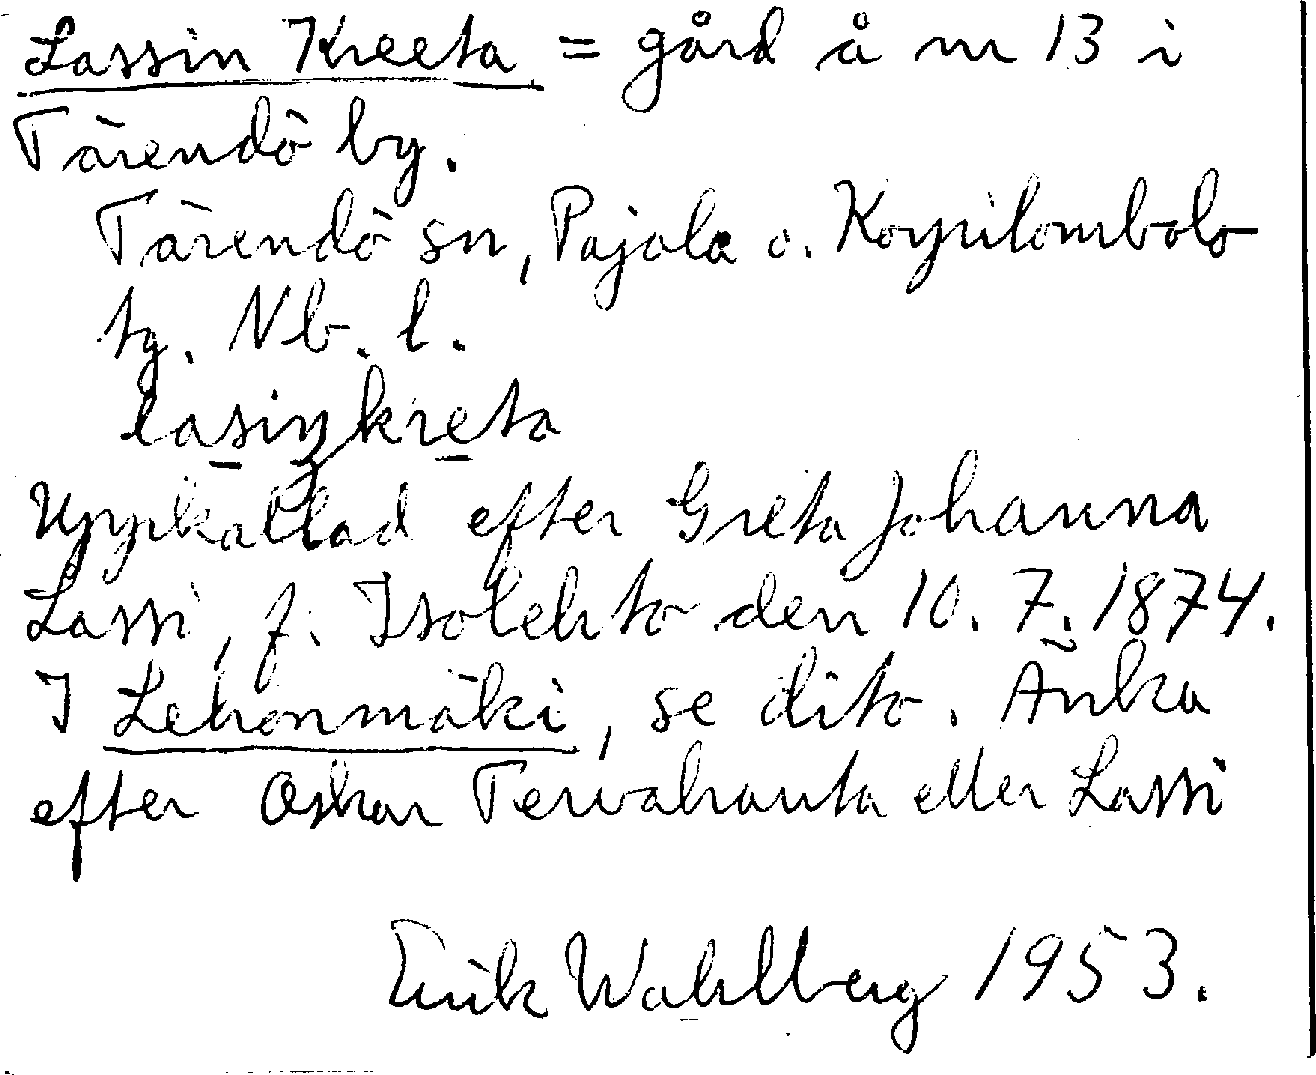 Lassin Kreeta = gård å nr 13 i
Tärendö by.
Tärendö sn, Pajala o. Korpilombolo
tg. Nb. l.
lasiŋkreta
Uppkallad efter Greta Johanna
Lassi, f. Isolehto den 10. 7. 1874.
I Lehonmäki, se dito. Änka
efter Oskar Tervahauta eller Lassi
Erik Wahlberg 1953.